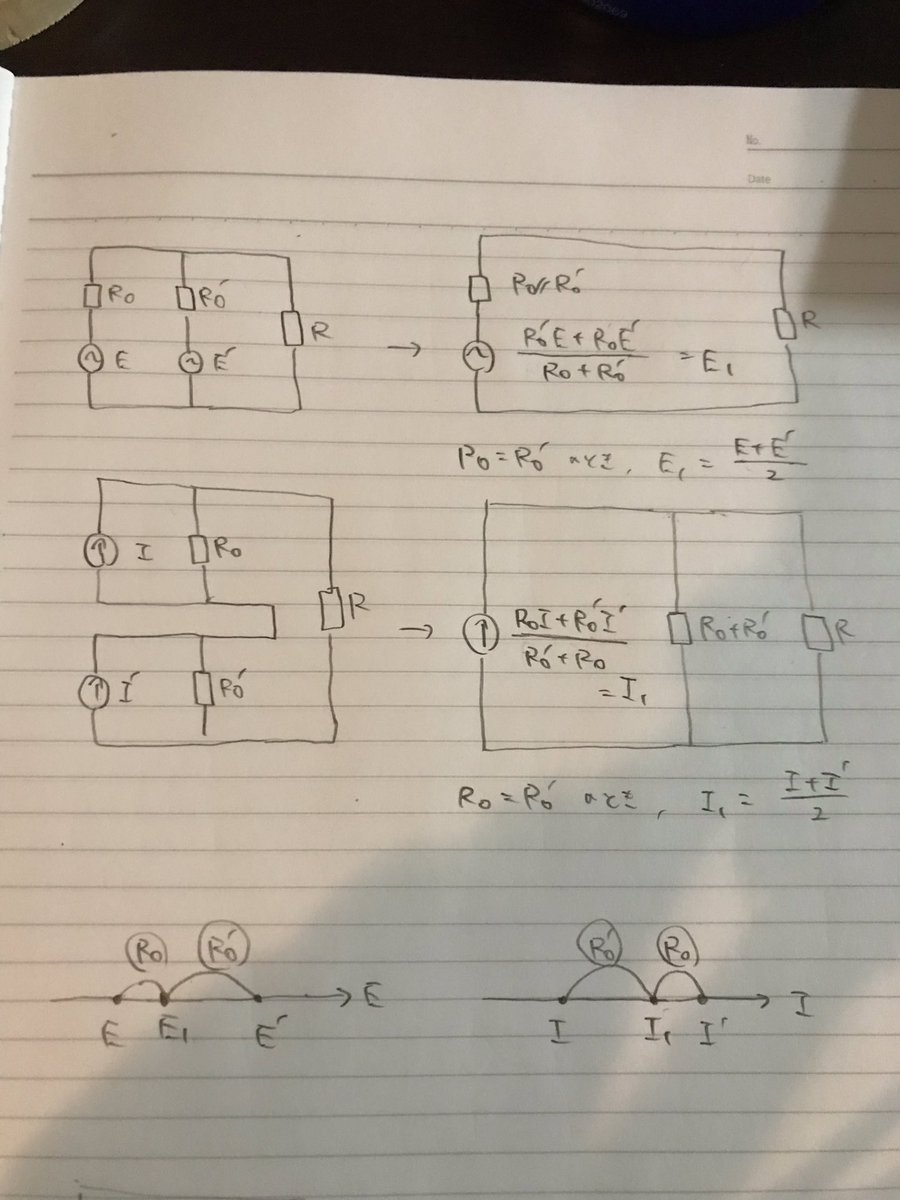 No.
Date
R₀ R₀′ R
E E′
R₀∥R₀′ R
(R₀′E + R₀E′)/(R₀ + R₀′) = E₁
R₀ = R₀′ のとき, E₁ = (E + E′)/2
I R₀ R
I′ R₀′
(R₀I + R₀′I′)/(R₀′ + R₀) R₀+R₀′ R
= I₁
R₀ = R₀′ のとき, I₁ = (I + I′)/2
R₀ R₀′ E
E E₁ E′
R₀′ R₀ I
I I₁ I′